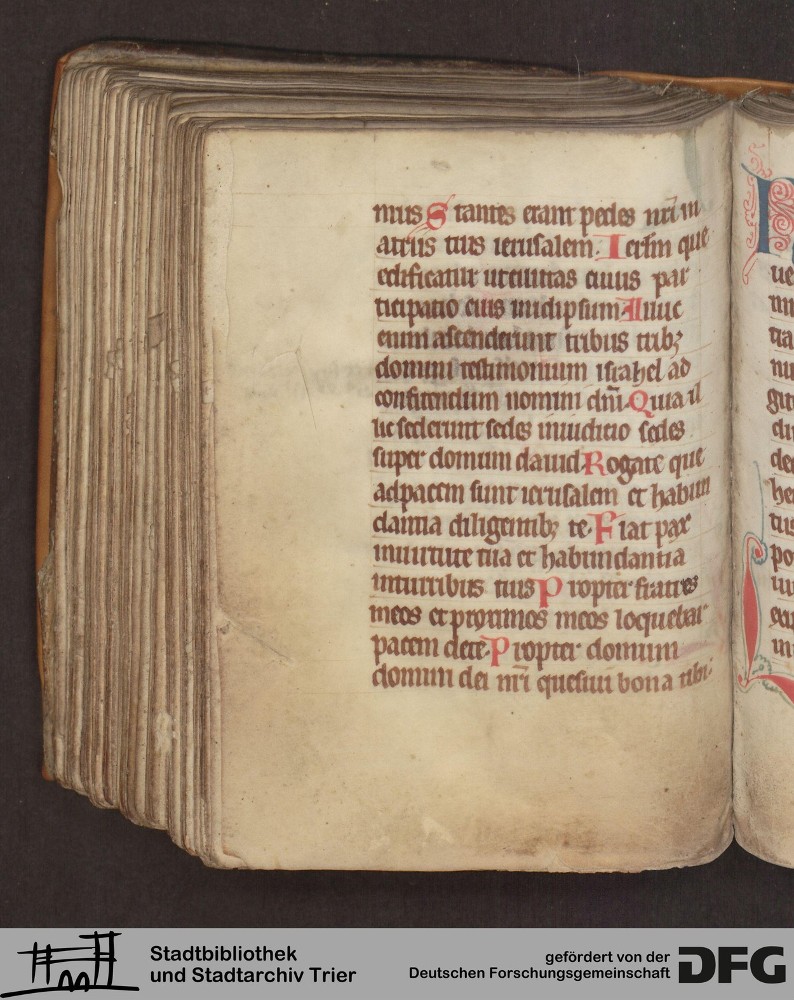 mus Stantes erant pedes nr̄i in
atriis tuis ierusalem. Ierlm̄ que
edificatur ut ciuitas cuius par
ticipatio eius inidipsum Illuc
enim ascenderunt tribus tribꝫ
domini testimonium israhel ad
confitendum nomini dn̄i Quia il
lic sederunt sedes iniudicio sedes
super domum dauid Rogate que
adpacem sunt ierusalem et habun
dantia diligentibꝫ te. Fiat pax
inuirtute tua et habundantia
inturribus tuis Propter fratres
meos et proximos meos loquebar
pacem dete. Propter domum
domini dei nr̄i quesiui bona tibi.
Stadtbibliothek
und Stadtarchiv Trier
gefördert von der
Deutschen Forschungsgemeinschaft
DFG